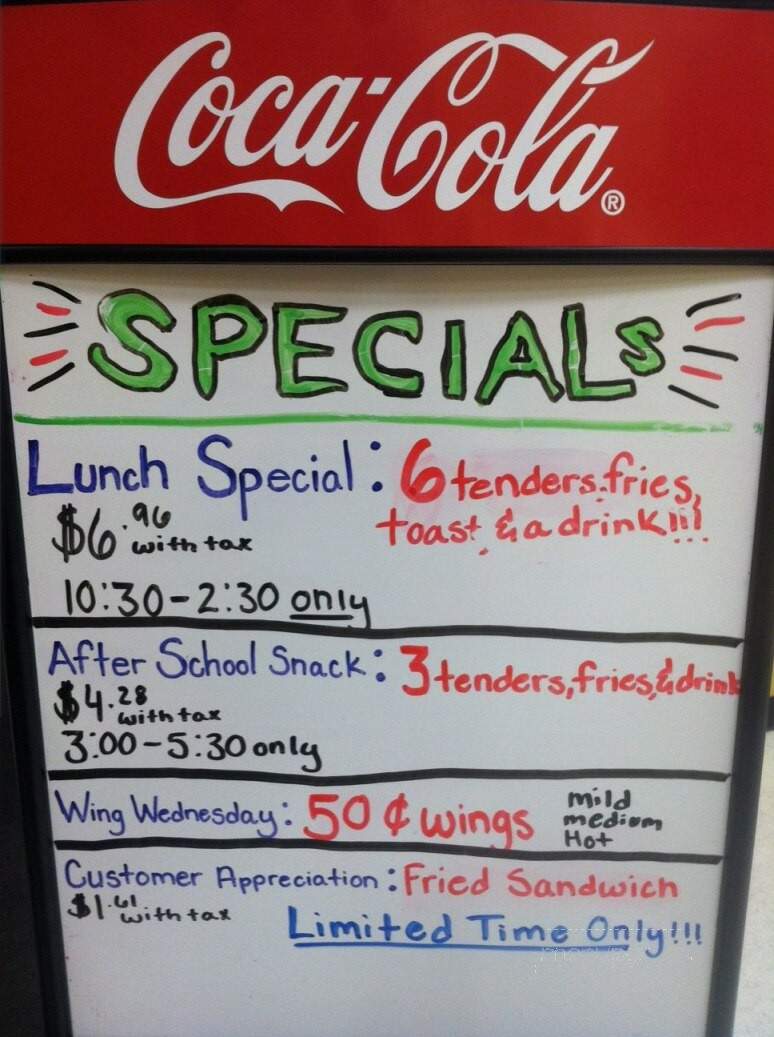 Coca-Cola®
SPECIALS
Lunch Special: 6 tenders, fries,
toast, & a drink!!!
$6.96 with tax
10:30-2:30 only
After School Snack: 3 tenders, fries, & drink
$4.28 with tax
3:00-5:30 only
Wing Wednesday: 50¢ wings
mild
medium
Hot
Customer Appreciation: Fried Sandwich
$1.61 with tax
Limited Time Only!!!